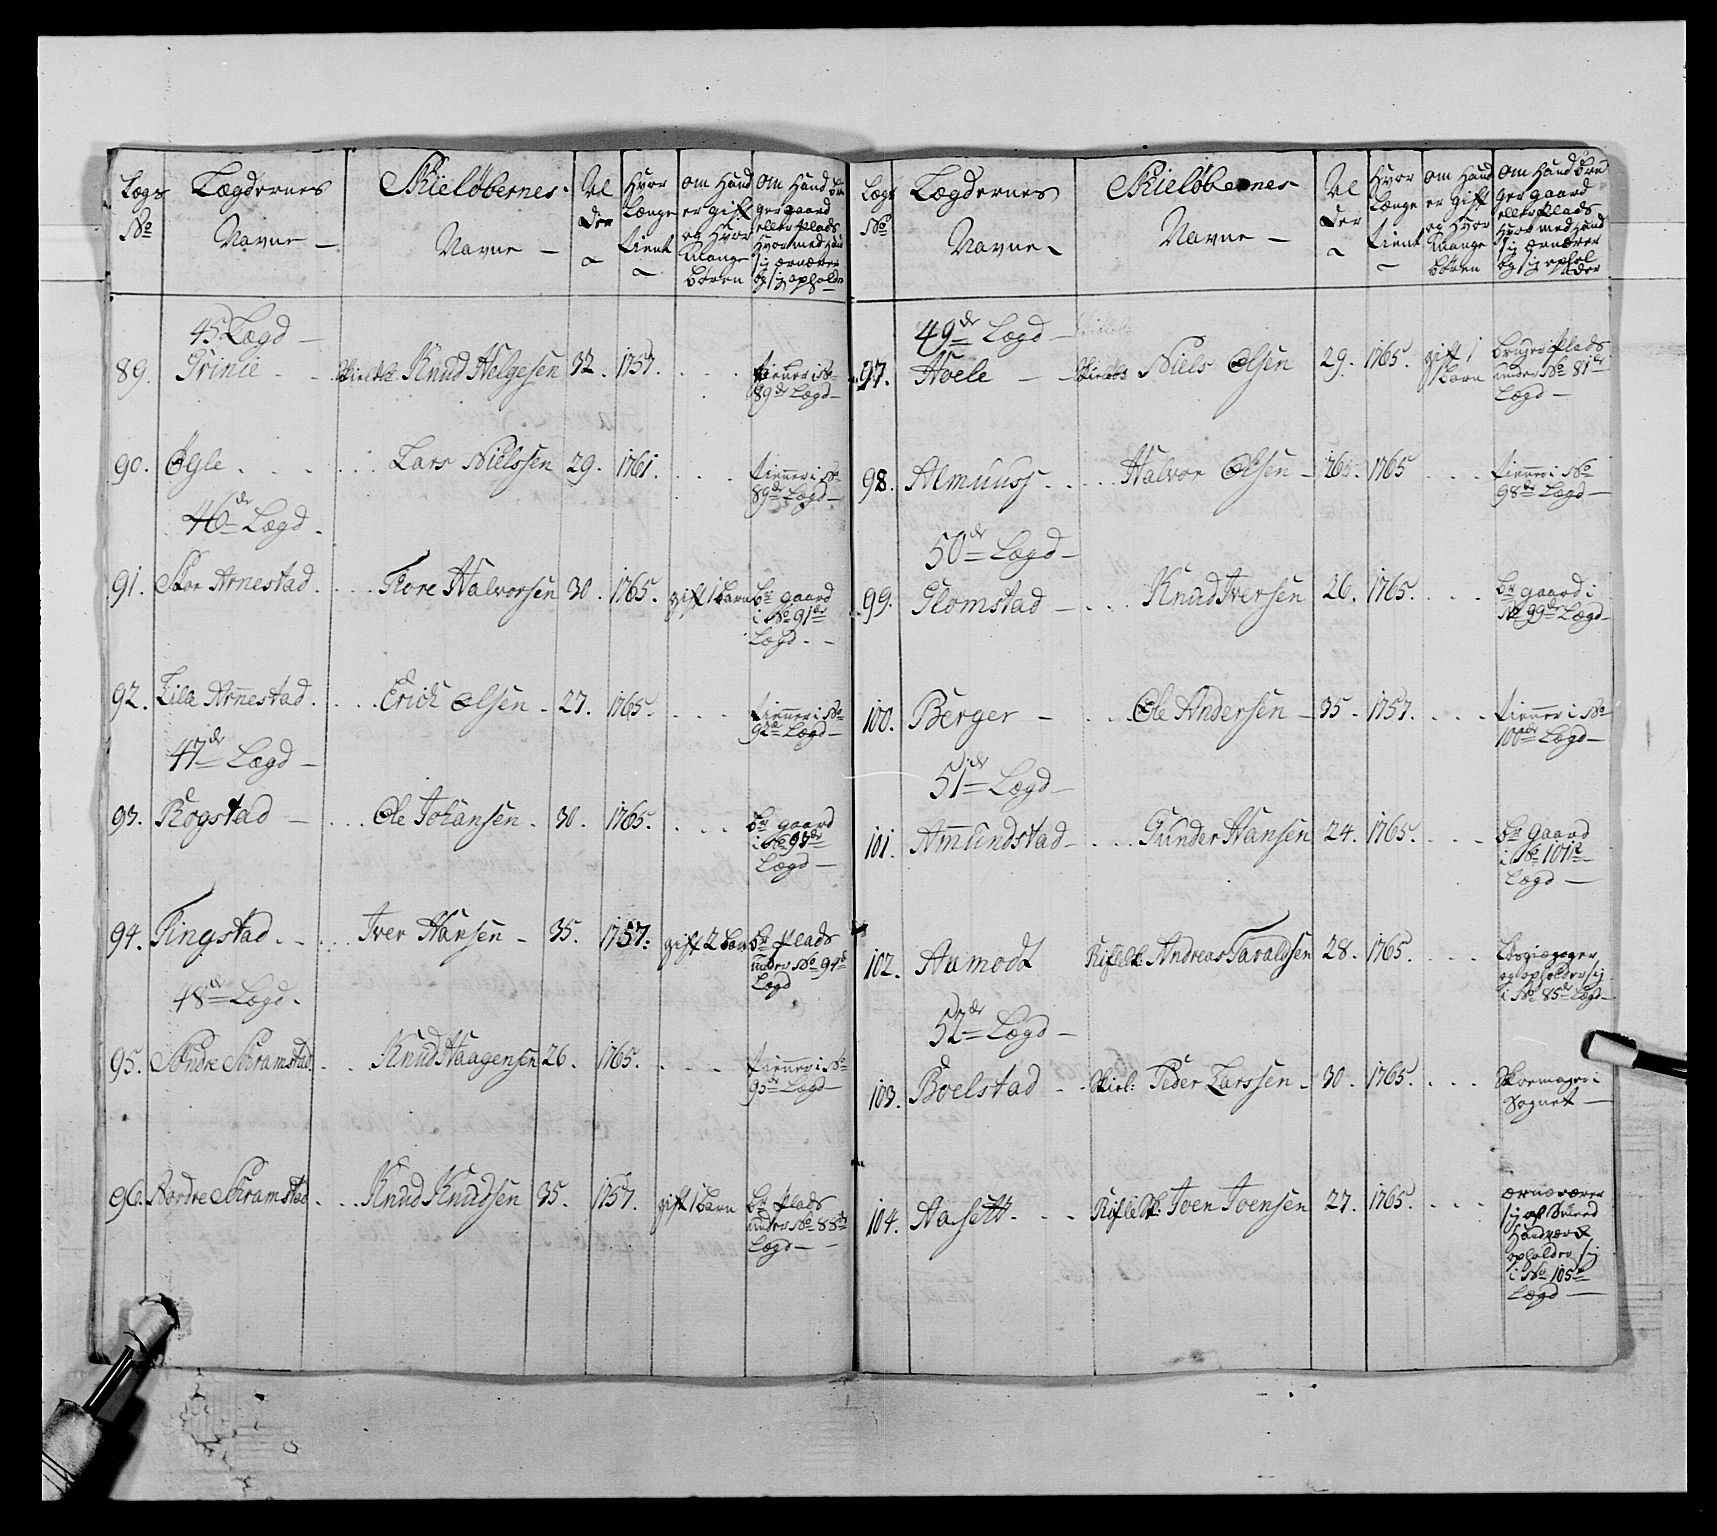 Lægs No
Lægdernes Navne —
Skieløbernes Navne —
Al der
Hvor Længe tient
om Hand er gift og Hvor Mange Børen
om Hand bru ger gaard eller Plads Hvor med Hand sig ærnærer og sig opholder
45 Lægd —
89. Grinie - - Knud Helgesen 32. 1757. . . . tienner i No 89de Lægd —
90. Ögle . . . . . Lars Nielssen 29. 1761. . . . tienner i No 89de Lægd —
46de Lægd.
91. Stor Arnestad. . . . Tore Halvorsen 30. 1765. gift 1 barn br gaard i No 91de Lægd. —
92. Lille Arnestad. . . . Erich Olsen - 27. 1765. . . . tienner i No 92de Lægd —
47de Lægd —
93. Rogstad — . . . Ole Johansen. 30. 1765. . . . br gaard i No 93de Lægd —
94. Tingstad. - . . . Iver Hansen - 35. 1757. gift 2 barn br Plads under No 94de Lægd
48de Lægd.
95. Söndre Skramstad. . . Knud Haagensen 26. 1765. . . . tienner i No 95de Lægd —
96. Nordre Skramstad . . . Knud Knudsen 35. 1757. gift 1 barn br Plads under No 85de Lægd —
Lægs No
Lægdernes Navne
Skieløbernes Navne —
Al der
Hvor Længe tient
om Hand er gift og Hvor Mange Børen
om Hand bru ger gaard eller Plads Hvor med Hand sig ærnærer og sig ophol der
49de Lægd —
97. Hoele — Niels Olsen 29. 1765. gift 1 barn bruger Plads under No 81de Lægd —
98. Almuuss . . . . Halvor Olsen - 26. 1765 . . . tienner i No 98de Lægd —
50de Lægd —
99. Glomstad — . . . Knud Iversen 26. 1765. . . . br gaard i No 99de Lægd
100. Berger — . . . Ole Andersen — 35. 1757. . . . tienner i No 100de Lægd —
51de Lægd —
101. Amundstad — . . . Gunder Hansen 24. 1765. . . . br gaard i No 101de Lægd —
102. Aamodt Andreas Taraldsen 28. 1765. . . . opholder sig i No 85de Lægd —
52de Lægd —
103. Boelstad - - Skiel: Peder Larssen - 30. 1765. . . . Skoemager i Sognet —
104. Aasett. . . Joen Joensen 27. 1765. . . . ærnærer sig af Smeed Handværk opholder sig i No 105de Lægd —